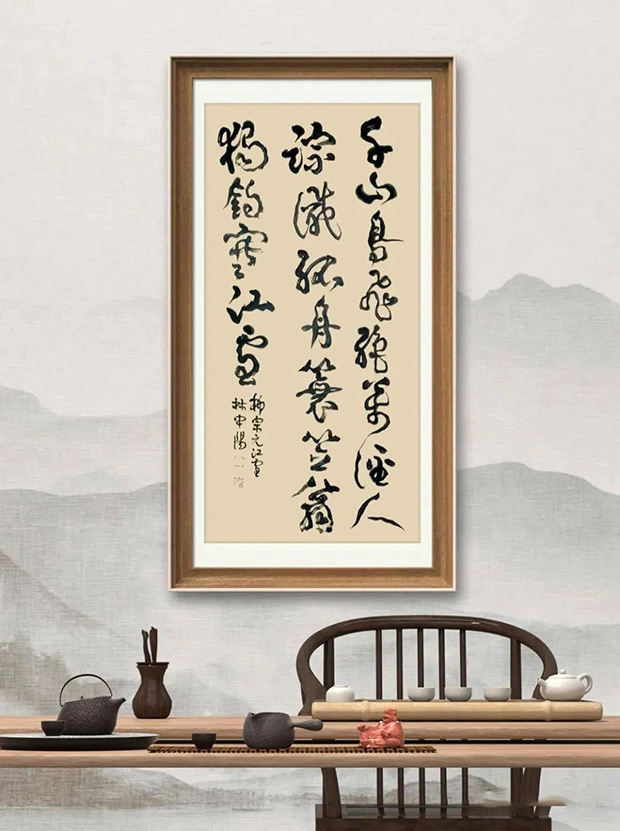 千山鳥飛絕萬徑人
踪滅孤舟蓑笠翁
獨釣寒江雪
柳宗元江雪
林中陽